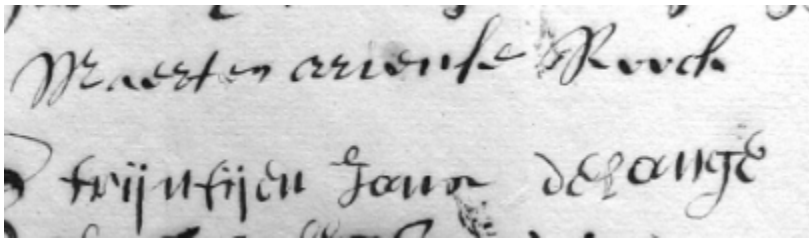 Maerten ariense Roock
trijntijen Jans delange